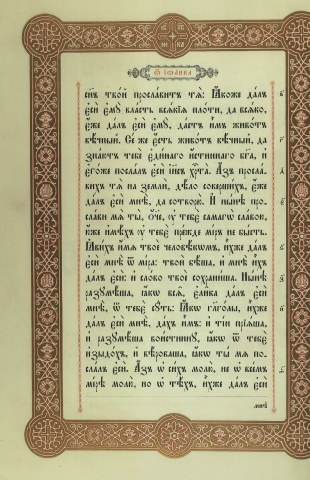 Ѿ іѡанна
сн҃ъ тво́й просла́витъ тѧ̀: Ꙗ҆́коже да́лъ
є҆сѝ є҆мꙋ̀ вла́сть всѧ́кїѧ пло́ти, да всѧ́ко,
є҆́же да́лъ є҆сѝ є҆мꙋ̀, да́стъ и҆̀мъ живо́тъ
вѣ́чный. Се́ же є҆́сть живо́тъ вѣ́чный, да
зна́ютъ тебѐ є҆ди́наго и҆́стиннаго бг҃а, и҆
є҆го́же посла́лъ є҆сѝ і҆и҃съ хрⷭ҇та̀. А҆́зъ просла́-
вихъ тѧ̀ на землѝ, дѣ́ло соверши́хъ, є҆́же
да́лъ є҆сѝ мнѣ̀, да сотворю̀. И҆ ны́нѣ про-
сла́ви мѧ̀ ты̀, ѻ҆́ч҃е, ᲂу҆ тебє̀ самагѡ̀ сла́вою,
ю҆́же и҆мѣ́хъ ᲂу҆ тебє̀ пре́жде мі́ръ не бы́сть.
Ꙗ҆ви́хъ и҆́мѧ твоѐ человѣ́кѡмъ, и҆̀хже да́лъ
є҆сѝ мнѣ̀ ѿ мі́ра: твоѝ бѣ́ша, и҆ мнѣ̀ и҆̀хъ
да́лъ є҆сѝ: и҆ сло́во твоѐ сохрани́ша. Ны́нѣ
разꙋмѣ́ша, ꙗ҆́кѡ всѧ̑, є҆ли̑ка да́лъ є҆сѝ
мнѣ̀, ѿ тебє̀ сꙋ́ть: Ꙗ҆́кѡ гл҃го́лы, и҆̀хже
да́лъ є҆сѝ мнѣ̀, да́хъ и҆̀мъ: и҆ ті́и прїѧ́ша,
и҆ разꙋмѣ́ша вои́стиннꙋ, ꙗ҆́кѡ ѿ тебє̀
и҆зыдо́хъ, и҆ вѣ́роваша, ꙗ҆́кѡ ты̀ мѧ̀ по-
сла́лъ є҆сѝ. А҆́зъ ѡ҆ си́хъ молю̀, не ѡ҆ все́мъ
мі́рѣ молю̀, но ѡ҆ тѣ́хъ, и҆̀хже да́лъ є҆сѝ
мнѣ̀